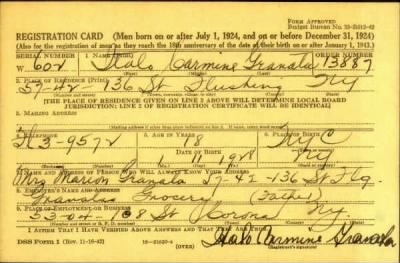 FORM APPROVED
REGISTRATION CARD (Men born on or after July 1, 1924, and on or before December 31, 1924)
(Also for the registration of men as they reach the 18th anniversary of the date of their birth on or after January 1, 1943.)
SERIAL NUMBER
W 602 Italo Carmine Granata 13887
2. PLACE OF RESIDENCE (Print)
57-42-136 St Flushing NY
[THE PLACE OF RESIDENCE GIVEN ON LINE 2 ABOVE WILL DETERMINE LOCAL BOARD
JURISDICTION; LINE 2 OF REGISTRATION CERTIFICATE WILL BE IDENTICAL]
3. MAILING ADDRESS
4. TELEPHONE 5. AGE IN YEARS 6. PLACE OF BIRTH
3-9572 18 NYC
NY
7. NAME AND ADDRESS OF PERSON WHO WILL ALWAYS KNOW YOUR ADDRESS
Mrs Marion Granata 57-42-136 St Flg
8. EMPLOYER'S NAME AND ADDRESS
Granatas Grocery (Father)
9. PLACE OF EMPLOYMENT OR BUSINESS
53-04-108 St Corona NY.
I AFFIRM THAT I HAVE VERIFIED ABOVE ANSWERS AND THAT THEY ARE TRUE.
DSS Form 1 (Rev. 11-16-42) (OVER) Italo Carmine Granata
(Registrant's signature)